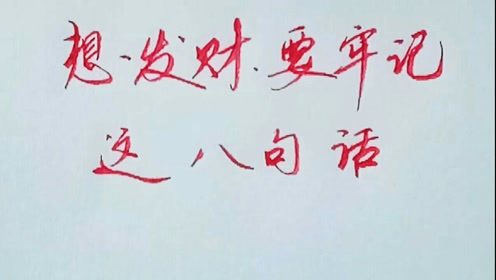 想发财.要牢记
这八句话